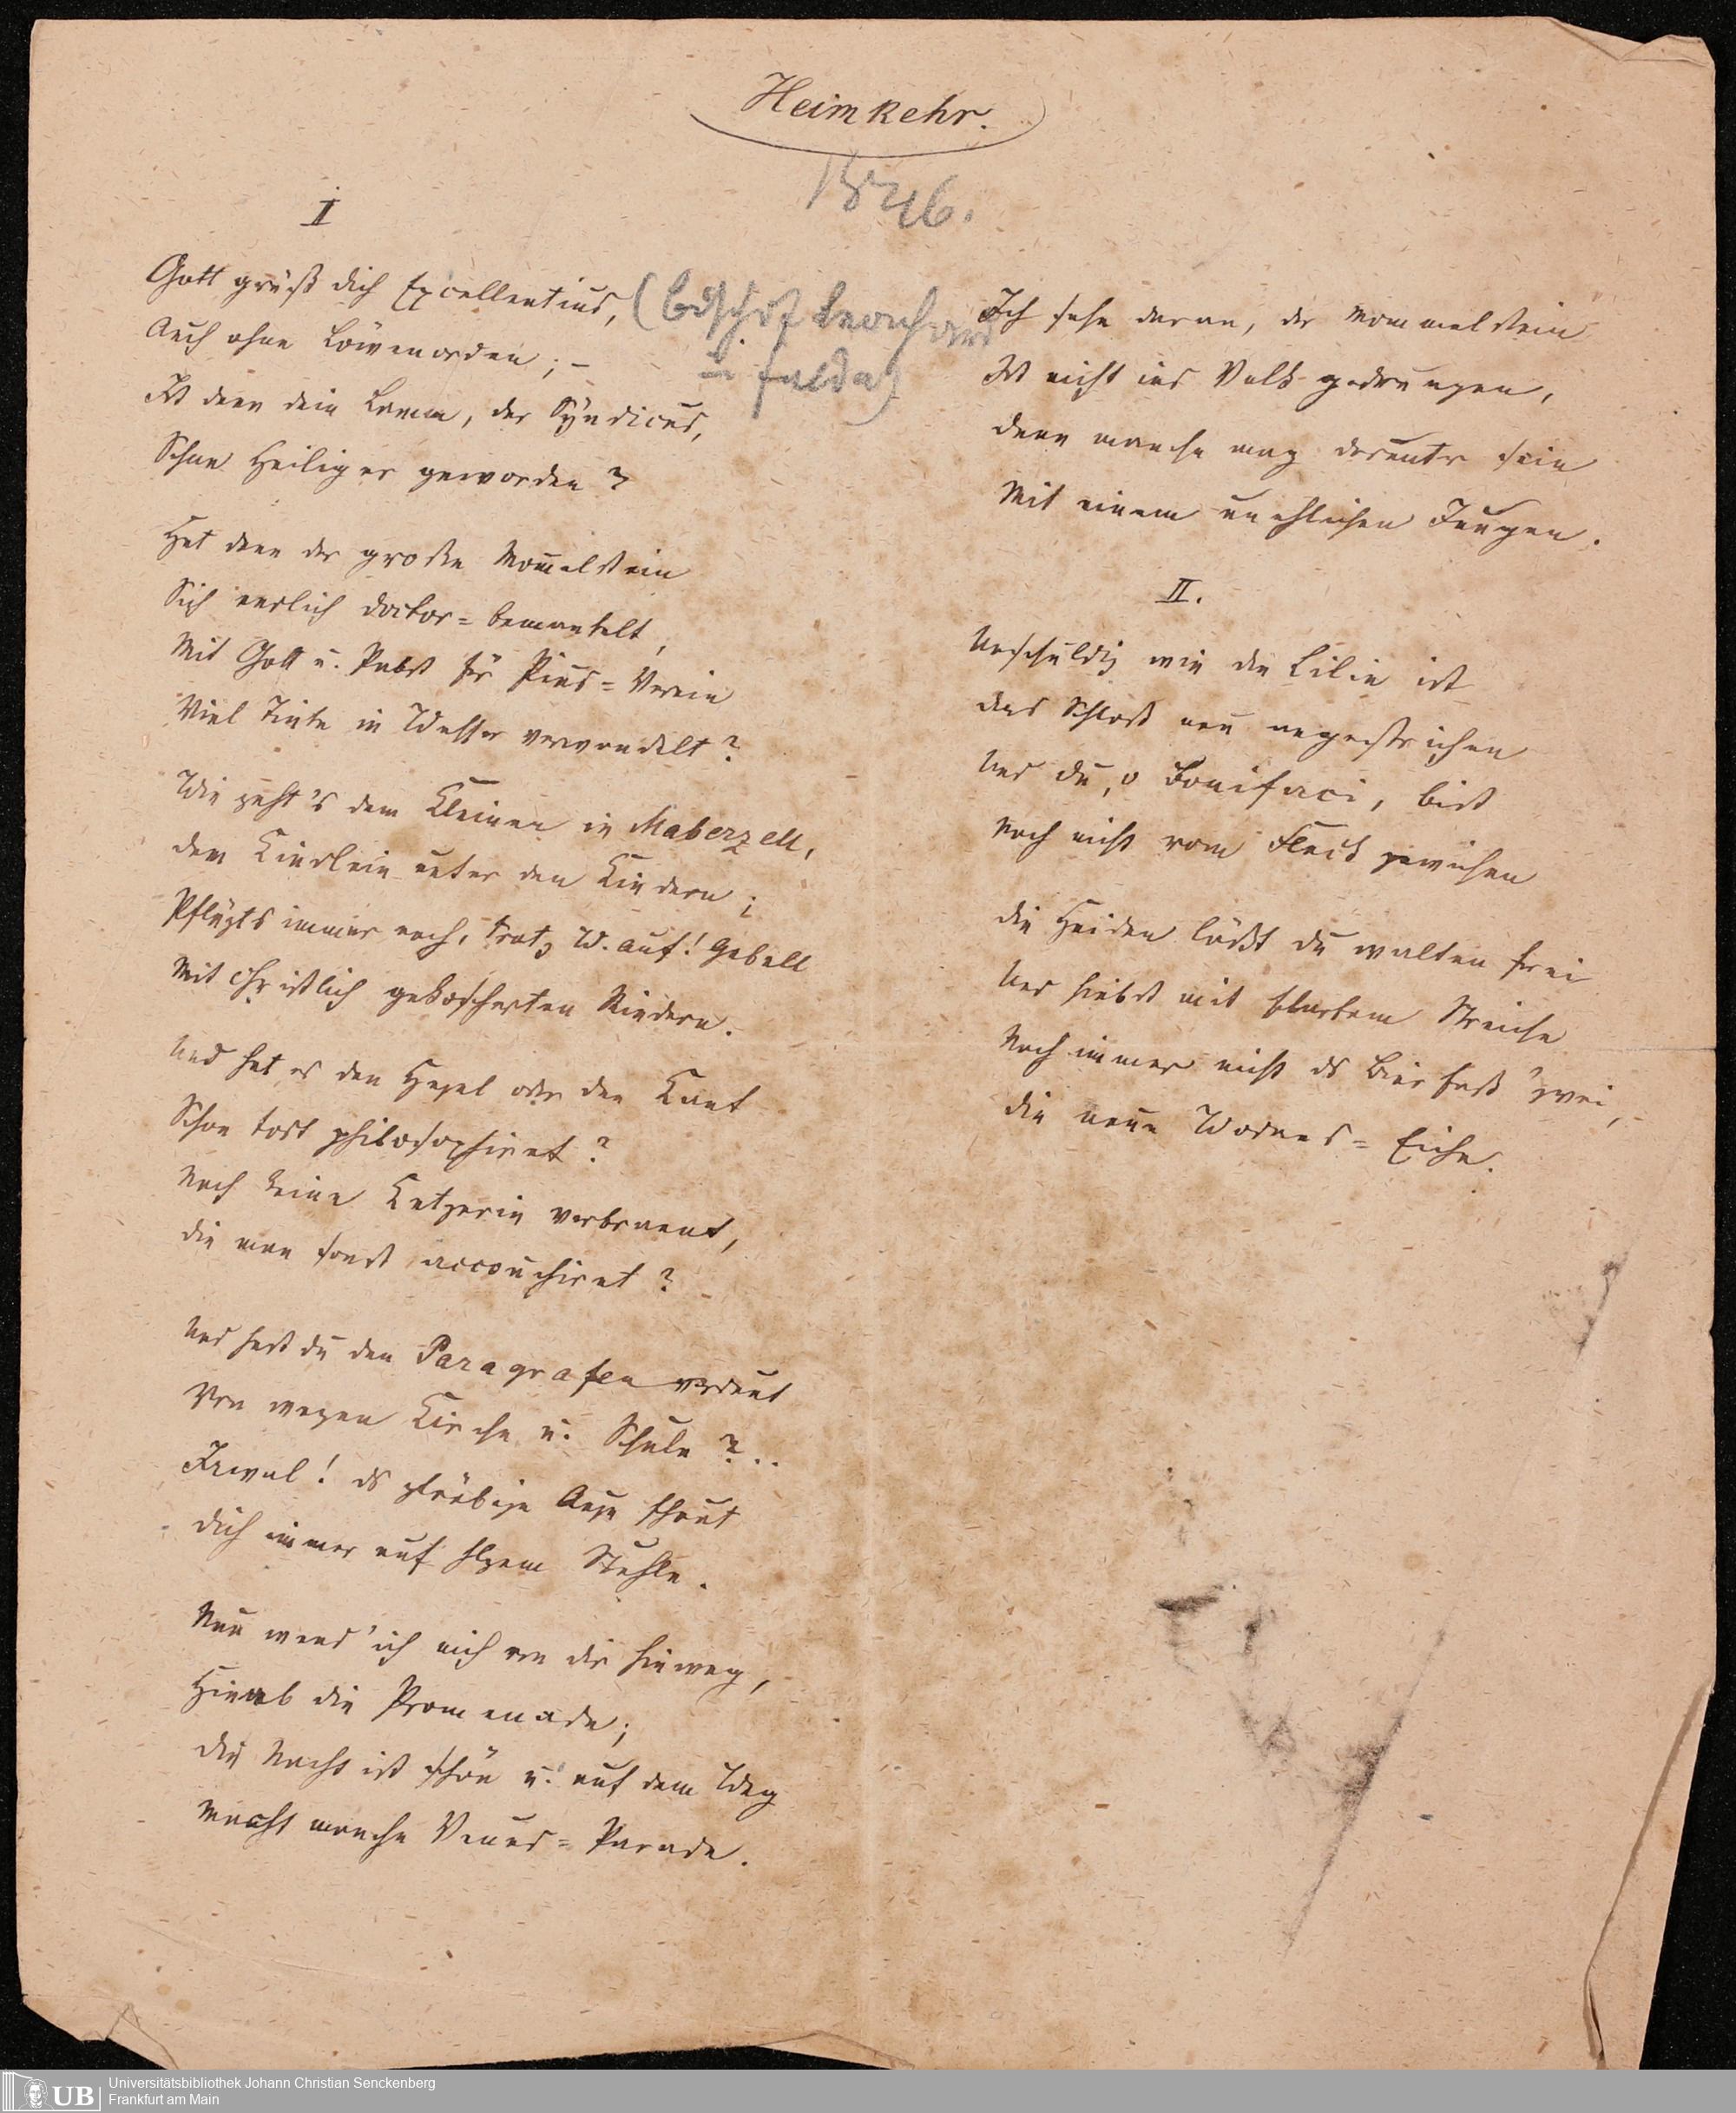 Heimkehr.
1846.
I
Gott grüß dich Excellentius,
(Bischof Leonhard
in Fulda)
Auch ohne Löwenorden; –
Ist denn dein Lamm, der Syndicus,
Schon Heiliger geworden?
Hat denn der große Mom̄elstein
Sich endlich doctor=bemantelt,
Mit Gott u. Pabst für Pius=Verein
Viel Tinte in Wasser verwandelt?
Wie geht's dem Kleinen in Maberzell,
dem Kindlein unter den Kindern;
Pflügts immer noch, trotz W. auf! Gebell
Mit christlich gekoscherten Rindern.
Und hat er den Hegel oder den Kant
Schon todt philosophiret?
Noch keine Ketzerin verbrannt,
die man sonst accouchiret?
Und hast du den Paragrafen verdaut
Von wegen Kirche u. Schule?..
Jawol! ds gläubige Auge schaut
dich immer auf hlgem Stuhle.
Nun wend' ich mich von dir hinweg,
Hinab die Promenade;
die Nacht ist schön u. auf dem Weg
Macht manche Venus=Parade.
Ich sehe daran, der Mommelstein
Ist nicht ins Volk gedrungen,
denn manche mag darunter sein
Mit einem unehlichen Jungen.
II.
Unschuldig wie die Lilie ist
das Schloß neu angestrichen
Und du, o Bonifaci, bist
Noch nicht vom Fleck gewichen
die Heiden läßt du walten frei
Und hiebst mit starkem Streiche
Noch immer nicht ds Bierfaß 'zwei, –
die neue Wodans=Eiche.
Universitätsbibliothek Johann Christian Senckenberg
Frankfurt am Main
UB